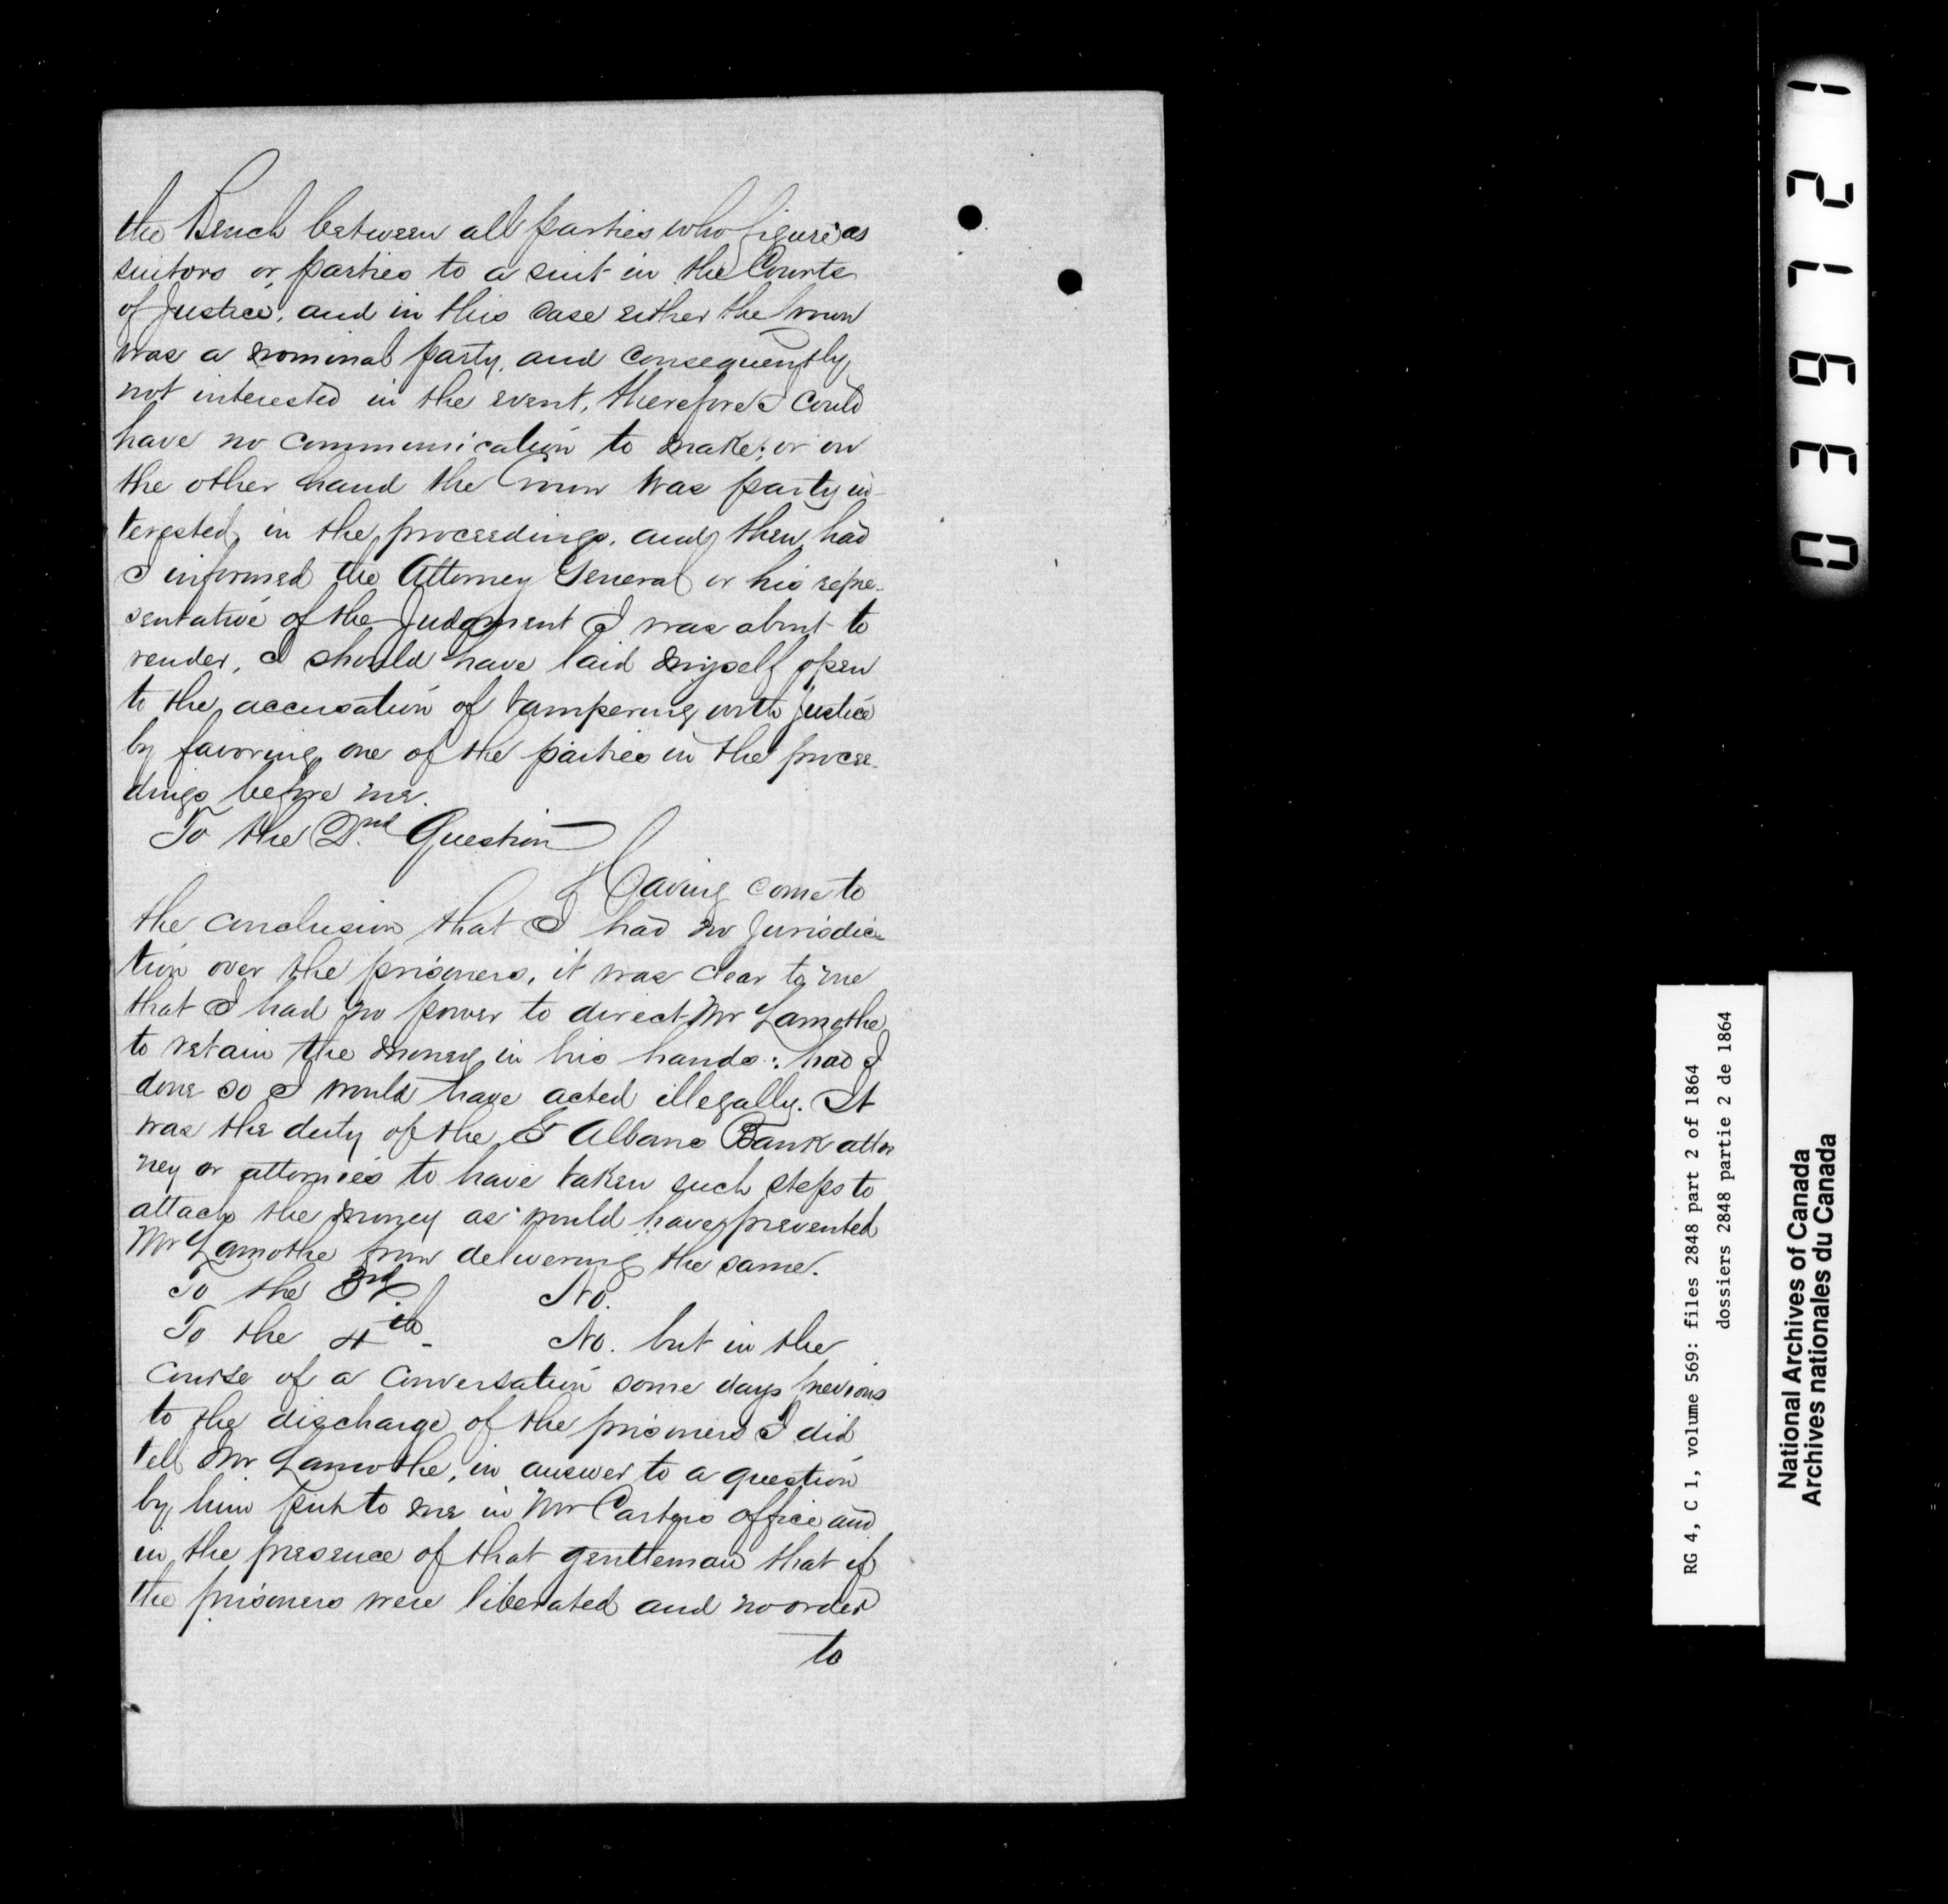 the Bench between all parties who figure as
suitors or parties to a suit in the Courts
of Justice, and in this case either the Crown
was a nominal party, and consequently
not interested in the event, therefore I could
have no communication to make; or on
the other hand the Crown was party in-
terested in the proceedings, and then had
I informed the Attorney General or his repre-
sentative of the Judgment I was about to
render, I should have laid myself open
to the accusation of tampering with Justice
by favoring one of the parties in the procee-
dings before me.
To the 2nd. Question
Having come to
the conclusion that I had no Jurisdic-
tion over the prisoners, it was clear to me
that I had no power to direct Mr Lamothe
to retain the money in his hands: had I
done so I would have acted illegally. It
was the duty of the St Albans Bank attor
ney or attornies to have taken such steps to
attach the money as would have prevented
Mr Lamothe from delivering the same.
To the 3rd. No.
To the 4th - No. but in the
course of a conversation some days previous
to the discharge of the prisoners I did
tell Mr Lamothe, in answer to a question
by him put to me in Mr Carters office and
in the presence of that gentleman that if
the prisoners were liberated and no order
to
0367121
RG 4, C 1, volume 569: files 2848 part 2 of 1864
dossiers 2848 partie 2 de 1864
National Archives of Canada
Archives nationales du Canada